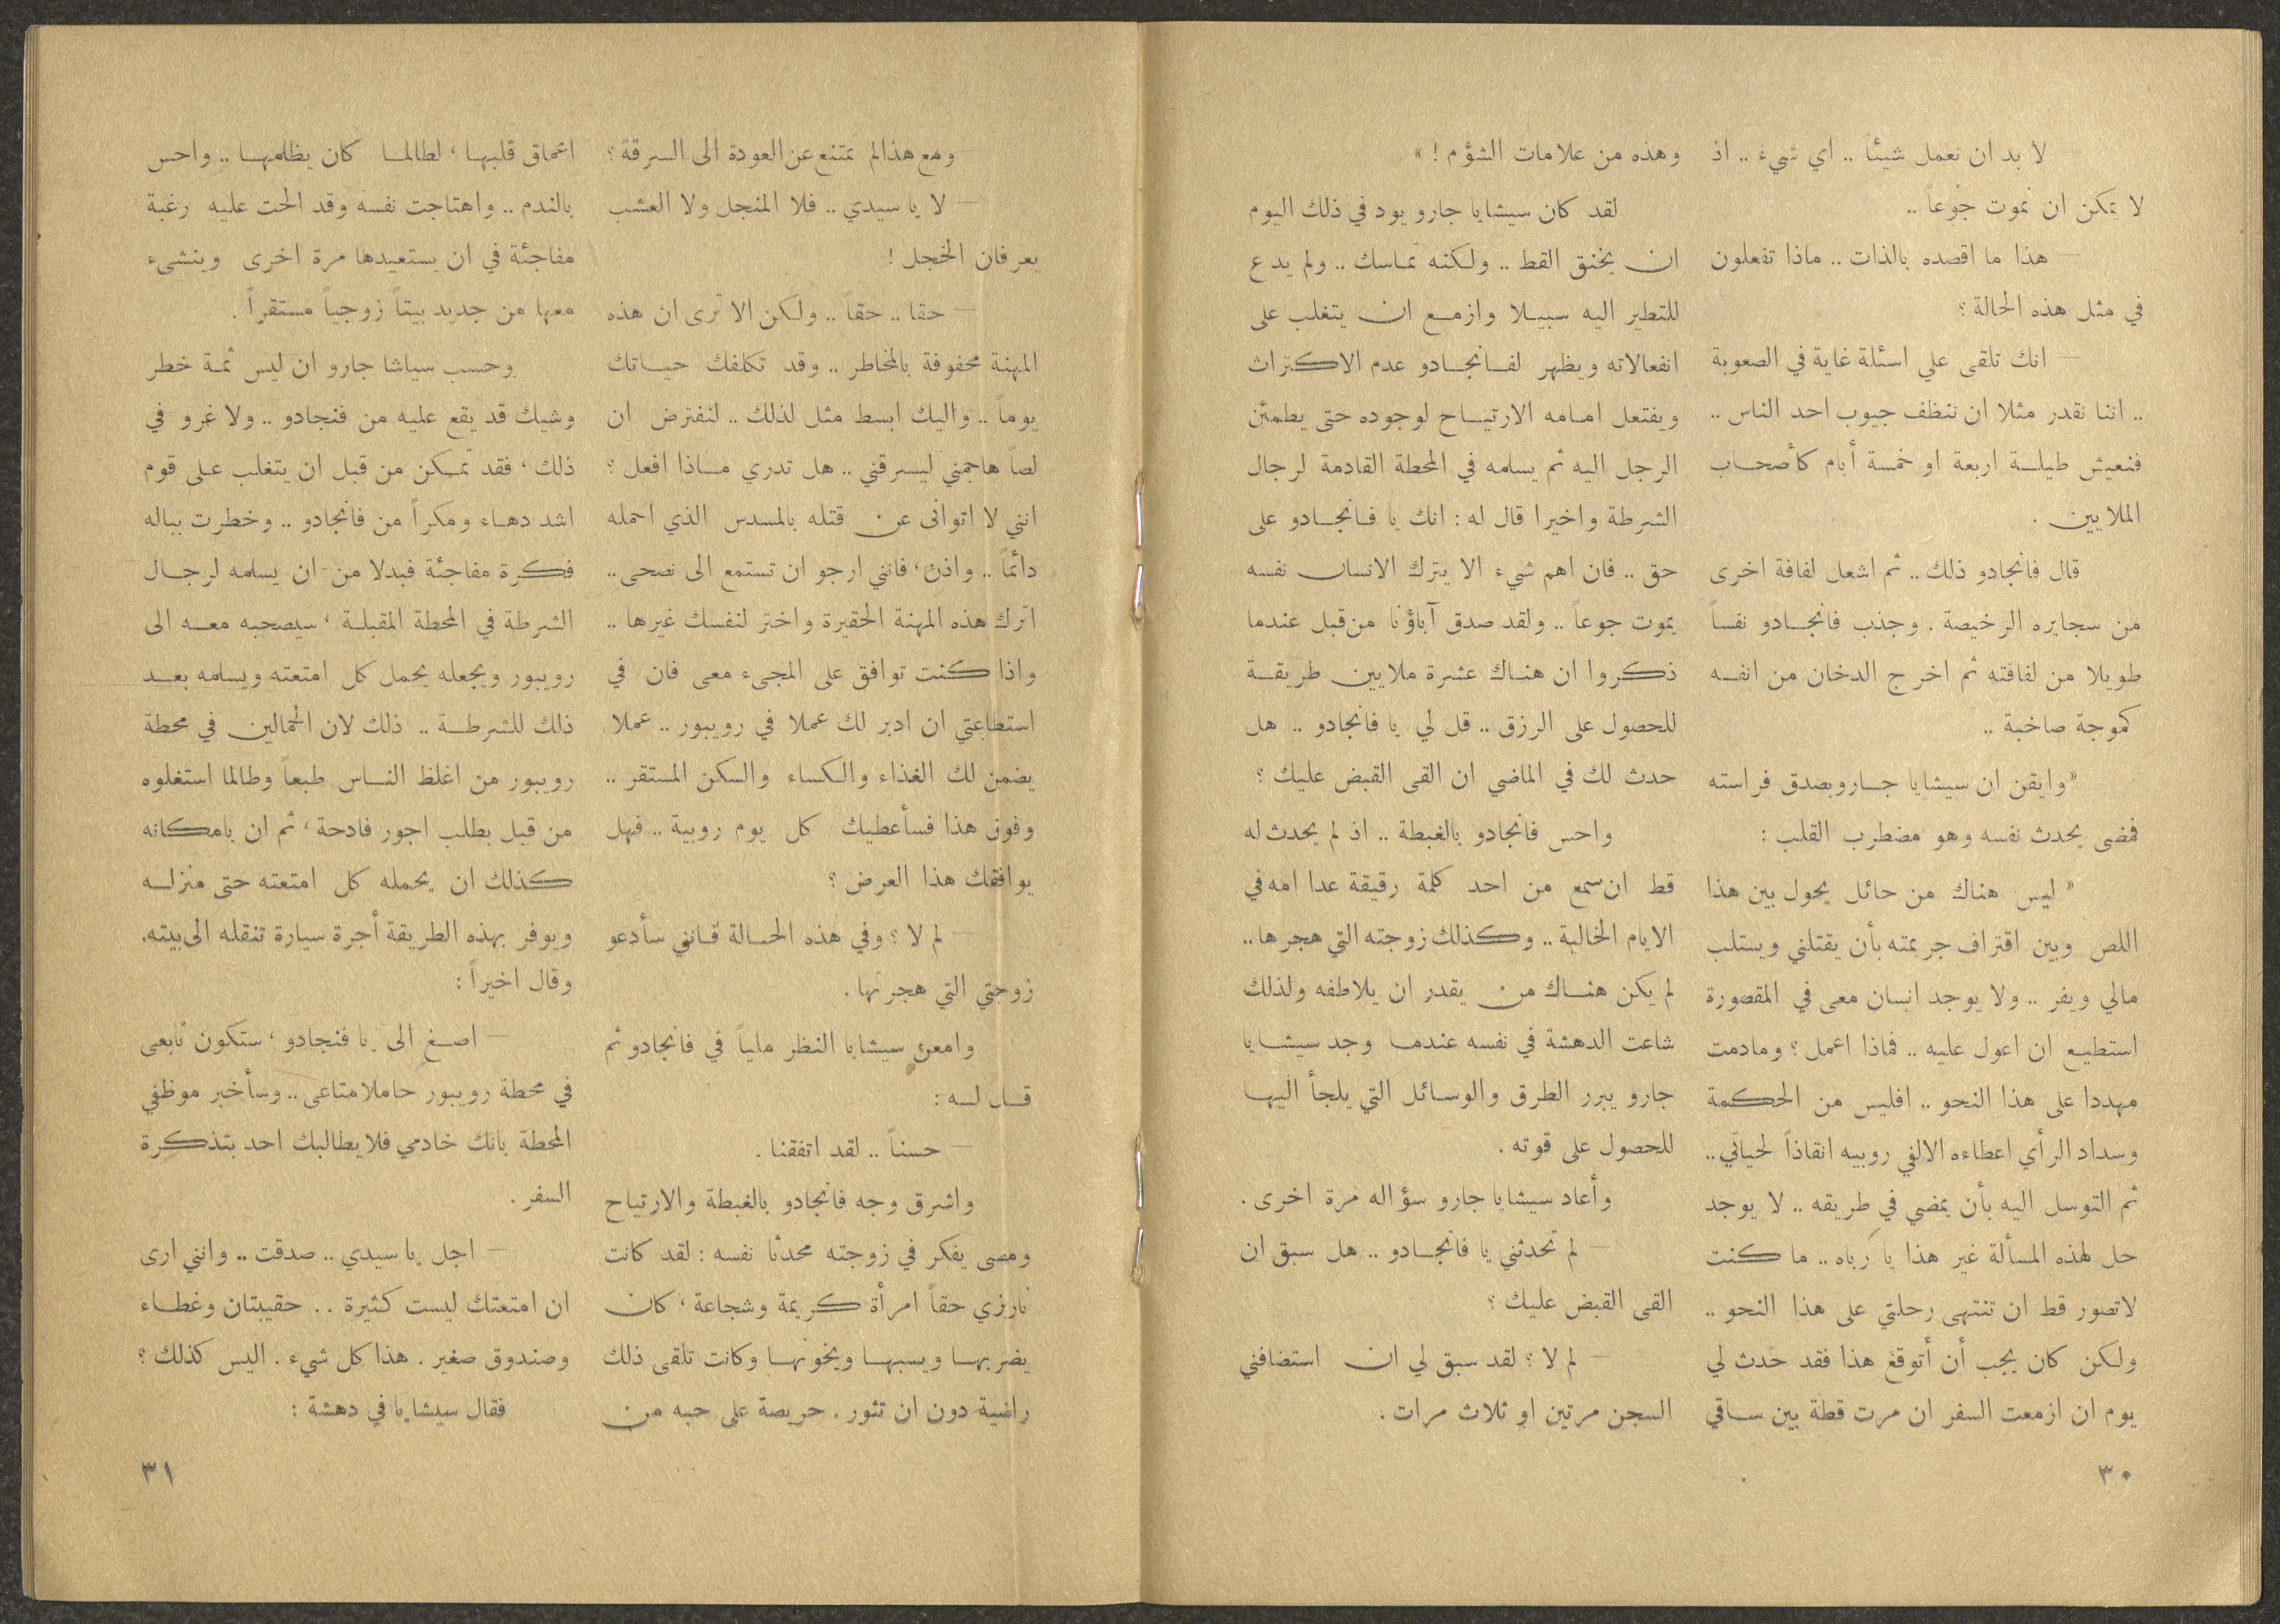 — لا بد ان نعمل شيئاً .. اي شيء .. اذ
لا يمكن ان نموت جوعاً ..
— هذا ما اقصده بالذات .. ماذا تفعلون
في مثل هذه الحالة ؟
— انك تلقى علي اسئلة غاية في الصعوبة
.. اننا نقدر مثلا ان ننظف جيوب احد الناس ..
فنعيش طيلة اربعة او خمسة أيام كأصحاب
الملايين .
قال فانجادو ذلك .. ثم اشعل لفافة اخرى
من سجايره الرخيصة . وجذب فانجادو نفساً
طويلا من لفافته ثم اخرج الدخان من انفه
كموجة صاخبة ..
« وايقن ان سيشايا جارو بصدق فراسته
فمضى يحدث نفسه وهو مضطرب القلب :
« ليس هناك من حائل يحول بين هذا
اللص وبين اقتراف جريمته بأن يقتلني ويستلب
مالي ويفر .. ولا يوجد انسان معى في المقصورة
استطيع ان اعول عليه .. فماذا اعمل ؟ ومادمت
مهددا على هذا النحو .. افليس من الحكمة
وسداد الرأي اعطاءه الالفي روبيه انقاذاً لحياتي ..
ثم التوسل اليه بأن يمضي في طريقه .. لا يوجد
حل لهذه المسألة غير هذا يا رباه .. ما كنت
لاتصور قط ان تنتهى رحلتي على هذا النحو ..
ولكن كان يجب أن أتوقع هذا فقد حدث لي
يوم ان ازمعت السفر ان مرت قطة بين ساقي
وهذه من علامات الشؤم ! »
لقد كان سيشايا جارو يود في ذلك اليوم
ان يخنق القط .. ولكنه تماسك .. ولم يدع
للتطير اليه سبيلا وازمع ان يتغلب على
انفعالاته ويظهر لفانجادو عدم الاكتراث
ويفتعل امامه الارتياح لوجوده حتى يطمئن
الرجل اليه ثم يسلمه في المحطة القادمة لرجال
الشرطة واخيرا قال له : انك يا فانجادو على
حق .. فان اهم شيء الا يترك الانسان نفسه
يموت جوعاً .. ولقد صدق آباؤنا من قبل عندما
ذكروا ان هناك عشرة ملايين طريقة
للحصول على الرزق .. قل لي يا فانجادو .. هل
حدث لك في الماضي ان القى القبض عليك ؟
واحس فانجادو بالغبطة .. اذ لم يحدث له
قط ان سمع من احد كلمة رقيقة عدا امه في
الايام الخالية .. وكذلك زوجته التي هجرها ..
لم يكن هناك من يقدر ان يلاطفه ولذلك
شاعت الدهشة في نفسه عندما وجد سيشايا
جارو يبرر الطرق والوسائل التي يلجأ اليها
للحصول على قوته .
وأعاد سيشايا جارو سؤاله مرة اخرى .
— لم تحدثني يا فانجادو .. هل سبق ان
القى القبض عليك ؟
— لم لا ؟ لقد سبق لي ان استضافني
السجن مرتين او ثلاث مرات .
٣٠
ومع هذا لم تمتنع عن العودة الى السرقة ؟
— لا يا سيدي .. فلا المنجل ولا العشب
يعرفان الخجل !
— حقا .. حقاً .. ولكن الا ترى ان هذه
المهنة محفوفة بالمخاطر .. وقد تكلفك حياتك
يوماً .. واليك ابسط مثل لذلك .. لنفترض ان
لصاً هاجمني ليسرقني .. هل تدري ماذا افعل ؟
انني لا اتوانى عن قتله بالمسدس الذي احمله
دائماً .. واذن ، فانني ارجو ان تستمع الى نصحى ..
اترك هذه المهنة الحقيرة واختر لنفسك غيرها ..
واذا كنت توافق على المجيء معى فان في
استطاعتي ان ادبر لك عملا في رويبور .. عملا
يضمن لك الغذاء والكساء والسكن المستقر ..
وفوق هذا فسأعطيك كل يوم روبية .. فهل
يوافقك هذا العرض ؟
— لم لا ؟ وفي هذه الحالة فانني سأدعو
زوجتي التي هجرتها .
وامعن سيشايا النظر ملياً في فانجادو ثم
قال له :
— حسناً .. لقد اتفقنا .
واشرق وجه فانجادو بالغبطة والارتياح
ومضى يفكر في زوجته محدثا نفسه : لقد كانت
نارزي حقاً امرأة كريمة وشجاعة ، كان
يضربها ويسبها ويخونها وكانت تلقى ذلك
راضية دون ان تثور . حريصة على حبه من
اعماق قلبها ، لطالما كان يظلمها .. واحس
بالندم .. واهتاجت نفسه وقد الحت عليه رغبة
مفاجئة في ان يستعيدها مرة اخرى وينشىء
معها من جديد بيتاً زوجياً مستقراً .
وحسب سياشا جارو ان ليس ثمة خطر
وشيك قد يقع عليه من فنجادو .. ولا غرو في
ذلك ، فقد تمكن من قبل ان يتغلب على قوم
اشد دهاء ومكراً من فانجادو .. وخطرت بباله
فكرة مفاجئة فبدلا من ان يسلمه لرجال
الشرطة في المحطة المقبلة ، سيصحبه معه الى
رويبور ويجعله يحمل كل امتعته ويسلمه بعد
ذلك للشرطة .. ذلك لان الحمالين في محطة
رويبور من اغلظ الناس طبعاً وطالما استغلوه
من قبل بطلب اجور فادحة ، ثم ان بامكانه
كذلك ان يحمله كل امتعته حتى منزله
ويوفر بهذه الطريقة أجرة سيارة تنقله الى بيته.
وقال اخيراً :
— اصغ الى يا فنجادو ، ستكون تابعى
في محطة رويبور حاملا متاعى .. وسأخبر موظفي
المحطة بانك خادمي فلا يطالبك احد بتذكرة
السفر .
— اجل يا سيدي .. صدقت .. وانني ارى
ان امتعتك ليست كثيرة .. حقيبتان وغطاء
وصندوق صغير . هذا كل شيء . اليس كذلك ؟
فقال سيشايا في دهشة :
٣١